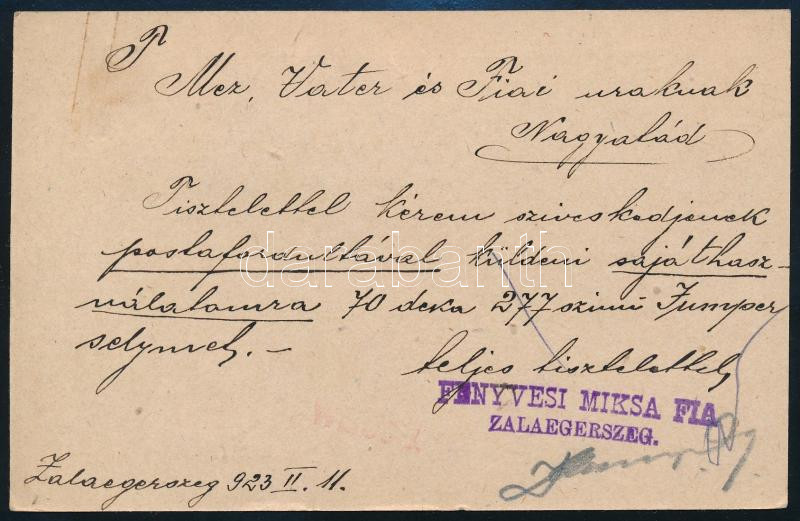 T
Mez, Vater és Fiai uraknak
Nagyatád
Tisztelettel kérem sziveskedjenek
postafordultával küldeni sajáthasz-
nálatomra 70 deka 277 szinü Jumper
selymet. –
teljes tisztelettel
FENYVESI MIKSA FIA
ZALAEGERSZEG.
Zalaegerszeg 923 II. 11.
darabanth